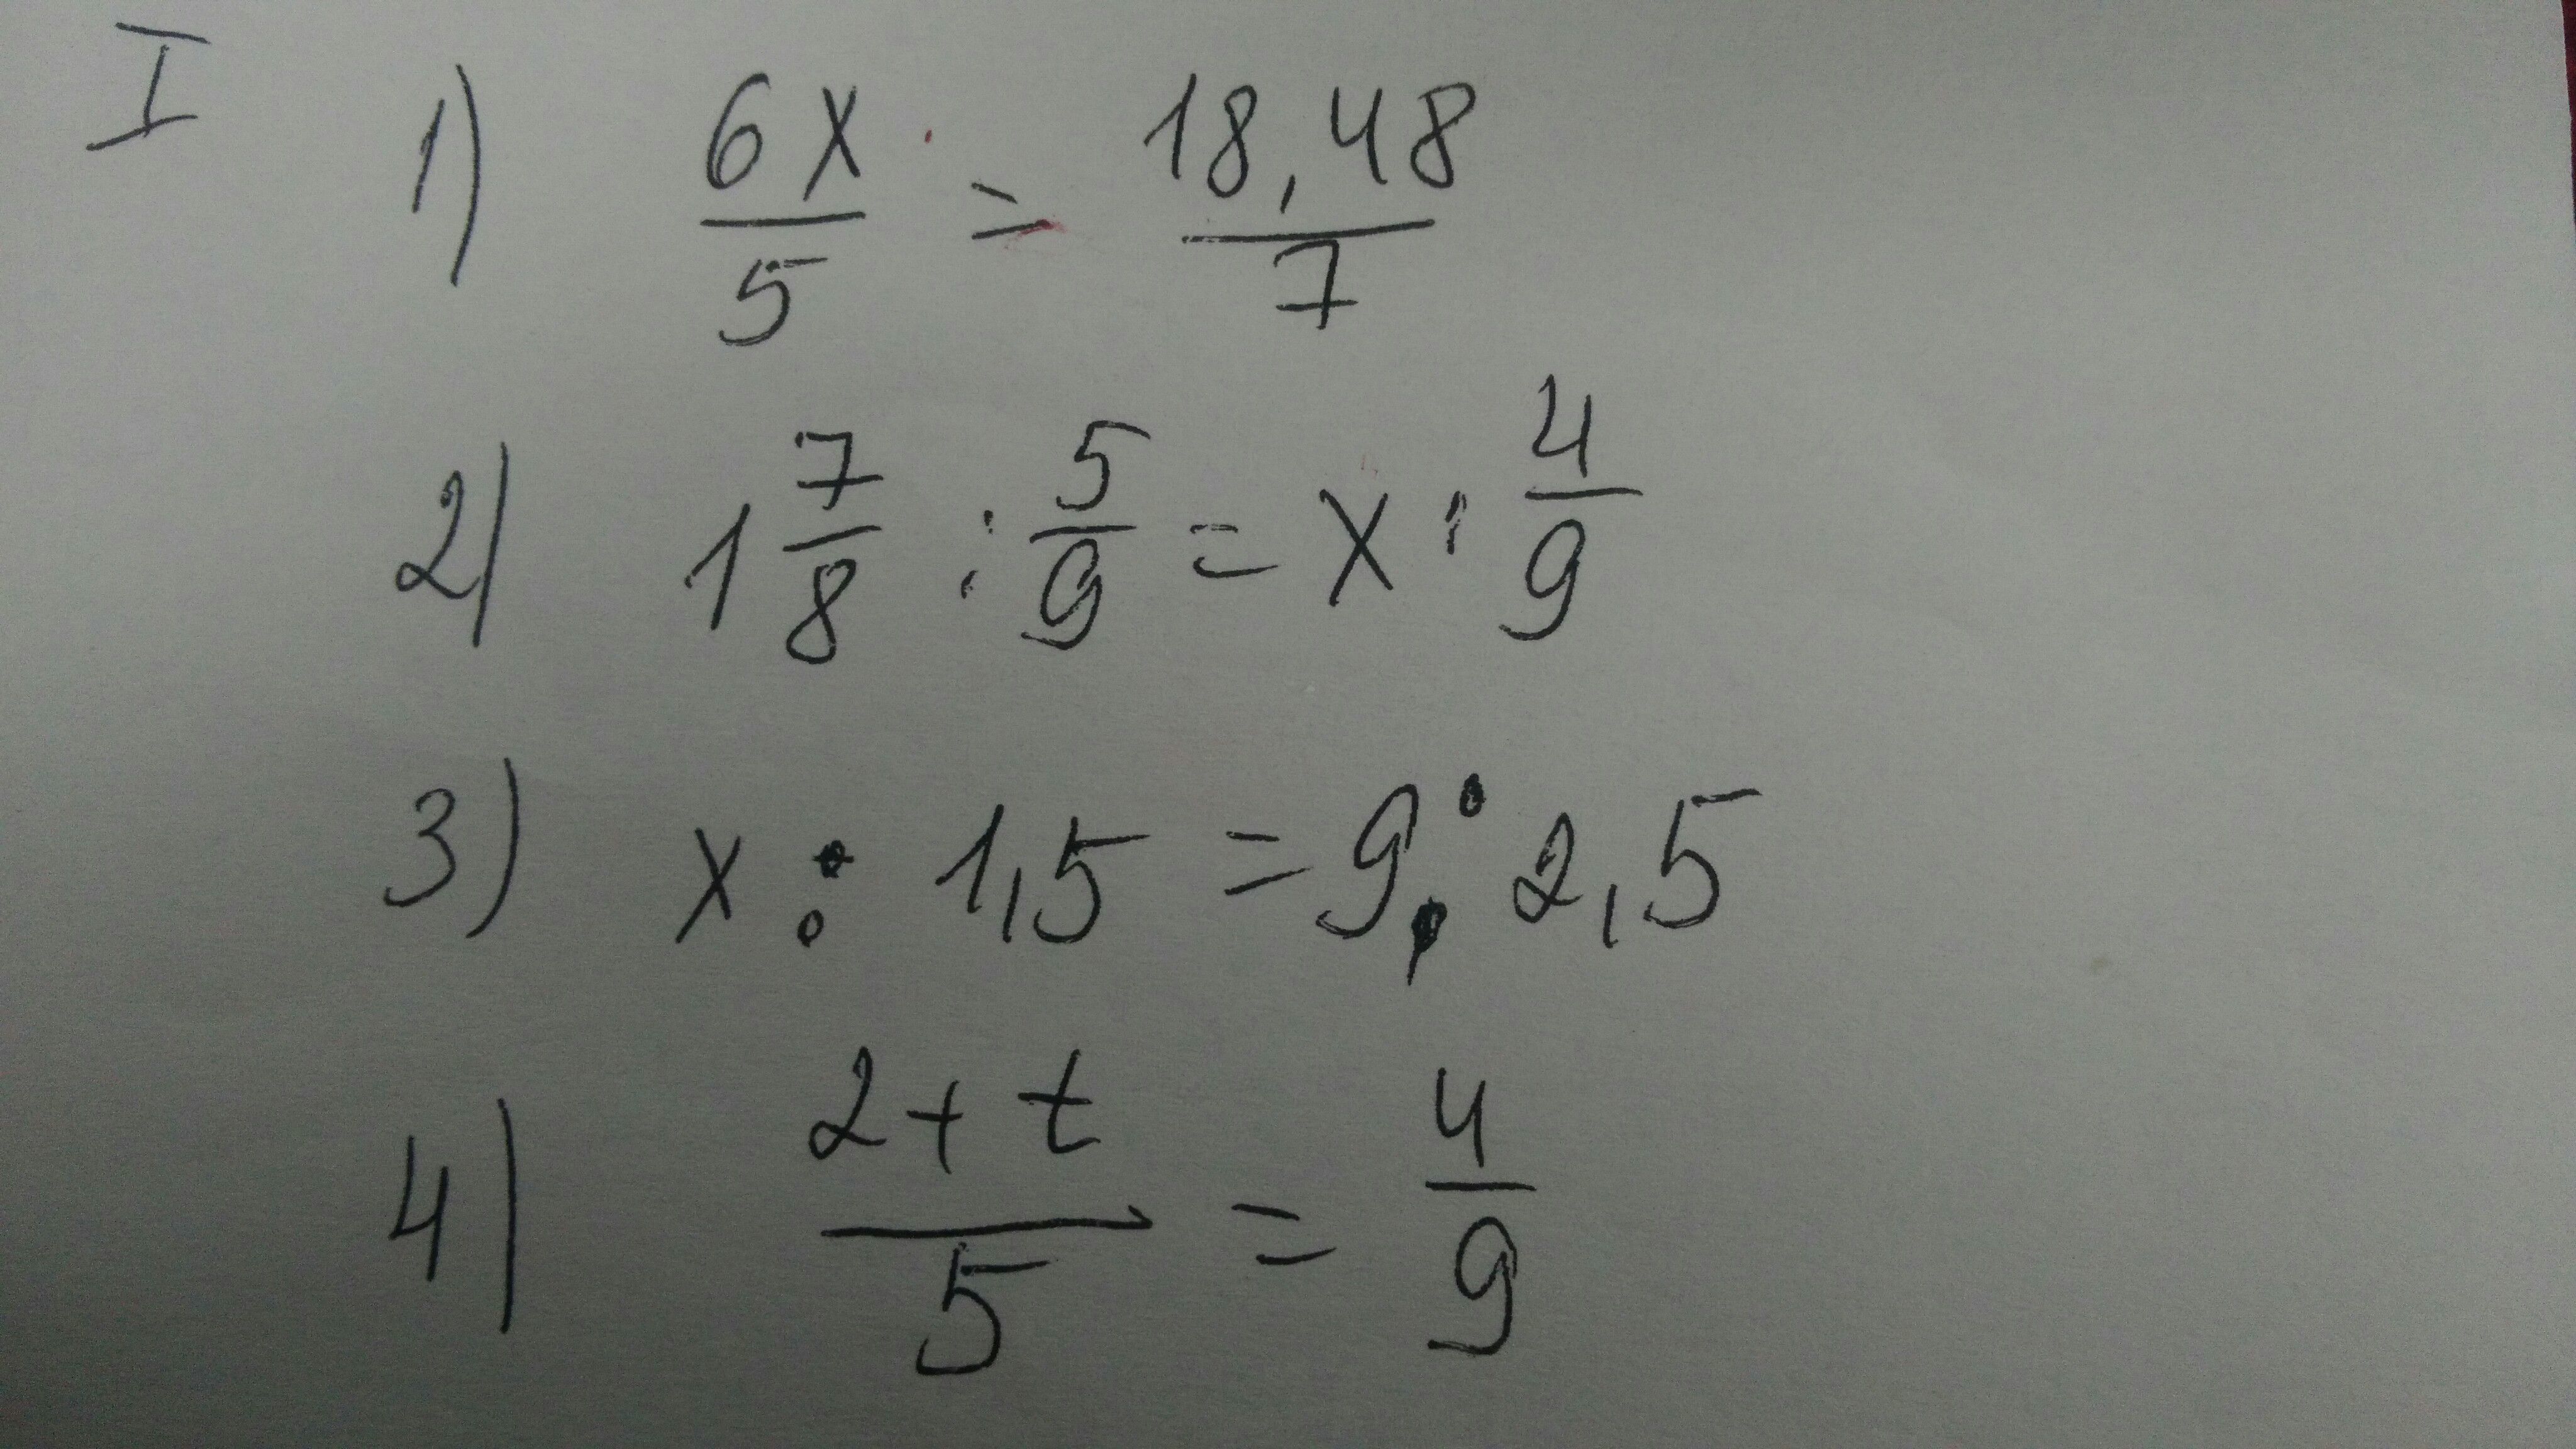 I 1) 6x/5 = 18,48/7
2) 1 7/8 : 5/9 = x : 4/9
3) x : 1,5 = 9 : 2,5
4) 2+t/5 = 4/9